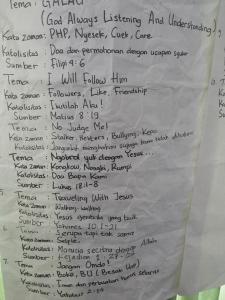 Tema : GALAU
(God Always Listening And Understanding)
Kata zaman : PHP, Nyesek, Cuek, Care
Katolisitas : Doa dan permohonan dengan ucapan syukur
Sumber : Filipi 4:6
Tema : I Will Follow Him
Kata Zaman : Followers, Like, Friendship
Katolisitas : Ikutilah Aku!
Sumber : Matius 8:19
Tema : No Judge Me!
Kata Zaman : Stalker, Haters, Bullying, Kepo
Katolisitas : Janganlah menghakimi supaya kamu tidak dihakimi
Sumber :
Tema : Ngobrol yuk dengan Yesus...
Kata zaman : Kongkow, Nongki, Rumpi
Katolisitas : Doa Bapa Kami
Sumber : Lukas 18:1-8
5. Tema : Traveling With Jesus
Kata Zaman : Walking-walking
Katolisitas : Yesus gembala yang baik
Sumber : Yohanes 10:1-21
6. Tema : Serupa tapi tak sama
Kata Zaman : Selfie
Katolisitas : Manusia secitra dengan Allah
Sumber : Kejadian 1:27-
7. Tema : Jangan Omdo!
Kata Zaman : BU (Besak
Katolisitas : Iman dan perbuatan harus selaras
Sumber : Yakobus 2:14